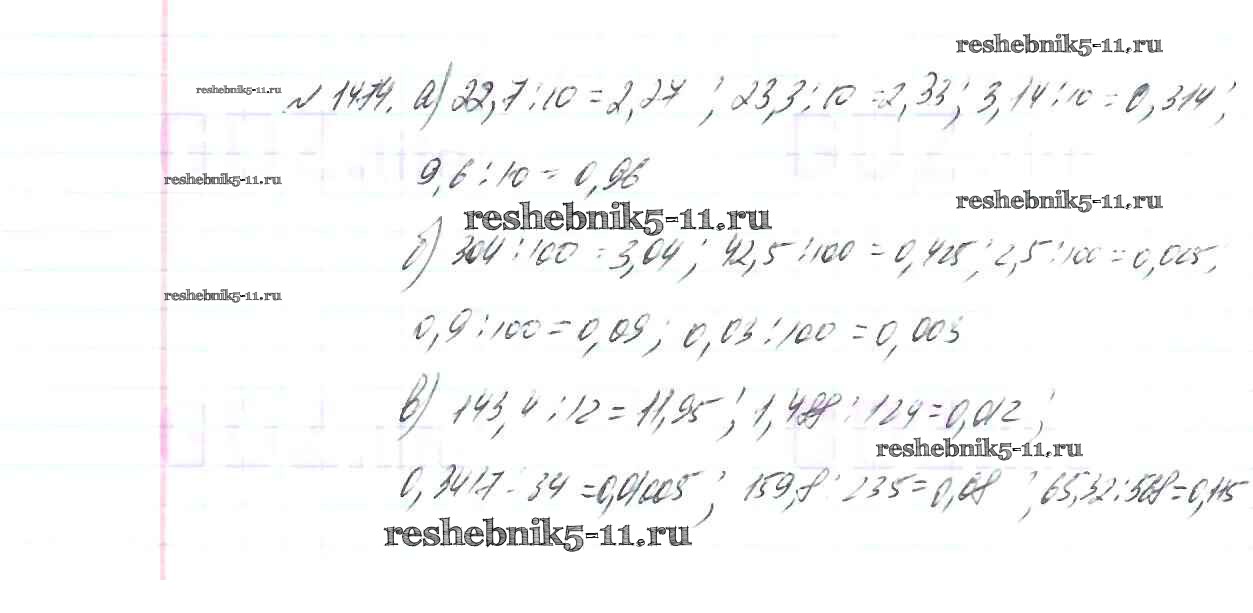 reshebnik5-11.ru
reshebnik5-11.ru
№ 1474. а) 22,7 : 10 = 2,27 ; 23,3 : 10 = 2,33 ; 3,14 : 10 = 0,314 ;
reshebnik5-11.ru
9,6 : 10 = 0,96
reshebnik5-11.ru
reshebnik5-11.ru
б) 304 : 100 = 3,04 ; 42,5 : 100 = 0,425 ; 2,5 : 100 = 0,025 ;
reshebnik5-11.ru
0,9 : 100 = 0,09 ; 0,03 : 100 = 0,003
в) 143,4 : 12 = 11,95 ; 1,488 : 124 = 0,012 ;
reshebnik5-11.ru
0,3417 : 34 = 0,01005 ; 159,8 : 235 = 0,68 ; 65,32 : 568 = 0,115
reshebnik5-11.ru